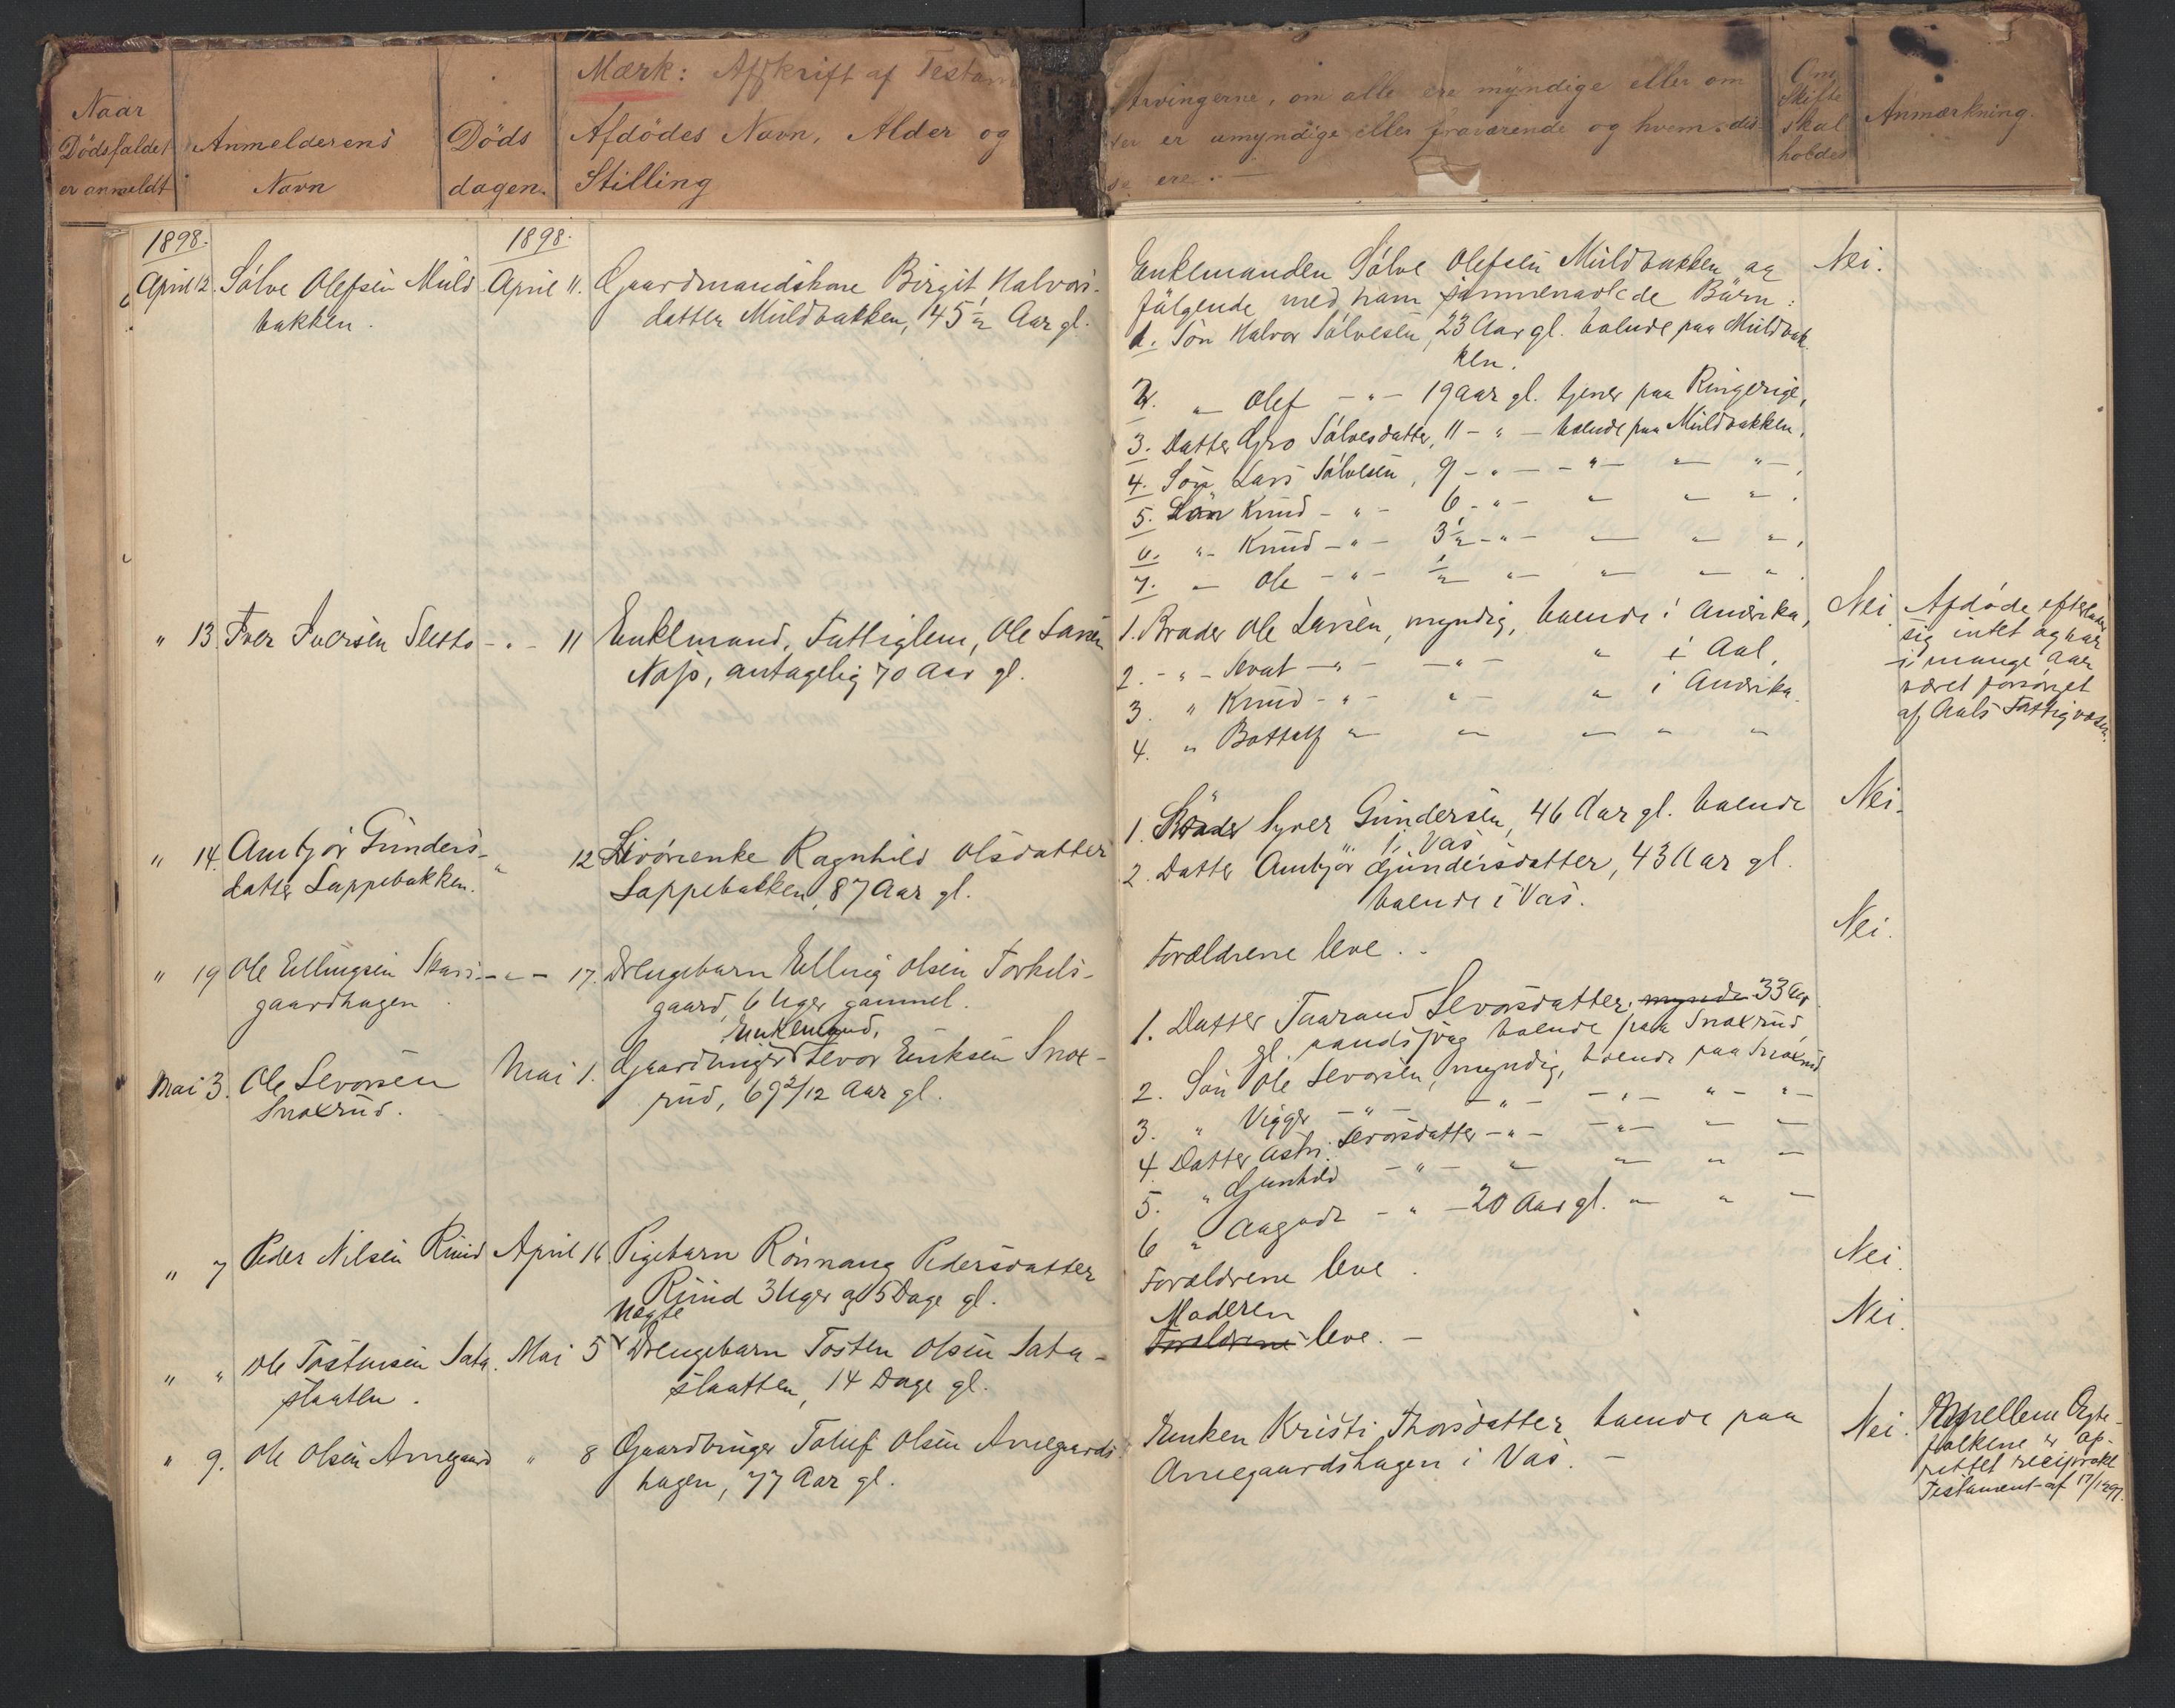 Naar
Dödsfaldet
er anmeldt
Anmelderens
Navn
Döds
dagen.
Mærk: Afskrift af Testam
Afdödes Navn, Alder og
Stilling
Arvingerne, om alle ere myndige eller om
er umyndige eller fraværende og hvem dis
se ere. —
Om
Skifte
skal
holdes
Anmærkning.
1898.
April 12. Sólve Olefsen Muld
bakken.
1898.
April 11. Gaardmandskone Birgit Halvors-
datter Muldbakken, 45½ Aar gl.
Enkemanden Sólve Olefsen Muldbakken og
følgende med ham sammenavlede Børn:
1. Søn Halvor Sólvesen, 23 Aar gl. boende paa Muldbak
ken.
2. " Olef - " - 19 aar gl. tjener paa Ringerige,
3. Datter Gro Sólvesdatter, 11 - " - boende paa Muldbakken,
4. Søn Lars Sólvesen, 9 - " - - " - " - " -,
5. Søn Knud - " - 6 - " - " " ".
6. " Knud - " - 3½ - " - " " ",
7. " Ole - " - ½ " " " ".
Nei.
" 13. Iver Iversen Sletto - " - 11 Enkemand, Fattiglem, Ole Larsen
Næss, antagelig 70 Aar gl.
1. Broder Ole Larsen, myndig, boende i Amerika,
2. - " - Sevat - " - - " - " i Aal,
3. " Knud - " - " - " i Amerika.
4. " Bottolf " " " " "
Nei
Afdøde efterlader
sig intet og har
i mange Aar
været forsørget
af Aals Fattigvæsen.
" 14. Ambjør Gunders-
datter Lappebakken.
" 12 Livörenke Ragnhild Olsdatter
Lappebakken, 87 Aar gl.
1. Sön Syver Gundersen, 46 Aar gl. boende
i Vas
2. Datter Ambjör Gundersdatter, 43 Aar gl.
boende i Vas.
Nei.
" 19 Ole Ellingsen Skars-
gaardhagen
- " - 17. Drengebarn Elling Olsen Torkils-
gaard, 6 Uger gammel.
Forældrene leve..
Nei.
Mai 3. Ole Sevorsen
Snoxrud.
Mai 1.
Enkemand,
Gaardbruger Sevor Eriksen Snox-
rud, 69 2/12 Aar gl.
1. Datter Taarand Sevorsdatter, myndi 33 Aar
gl. sindssyg boende paa Snoxrud,
2. Søn Ole Sevorsen, myndig, boende paa Snoxrud
3. " Vigger - " - - " - - " - " - " -
4. Datter Astri Sevorsdatter - " - - " - " "
5. " Gunhild - " - " " " "
6 " Aagodt - " - 20 Aar gl. " " "
" 7 Peder Nilsen Rund April 16 Pigebarn Rönnaug Pedersdatter
Rund 3 Uger og 5 Dage gl.
Forældrene leve.
Nei.
" " Ole Tostensen Sata
slaatten.
Mai 5
Uægte
Drengebarn Tosten Olsen Sata-
slaatten, 14 Dage gl.
Moderen
Forældrene leve. —
Nei.
" 9. Ole Olsen Arnegaard " 8 Gaardbruger Tollef Olsen Arnegaards
hagen, 77 Aar gl.
Enken Kristi Thorsdatter boende paa
Arnegaardshagen i Vas. —
Nei.
Mellem Ægte-
folkene er op-
rettet reciprokt
Testament af